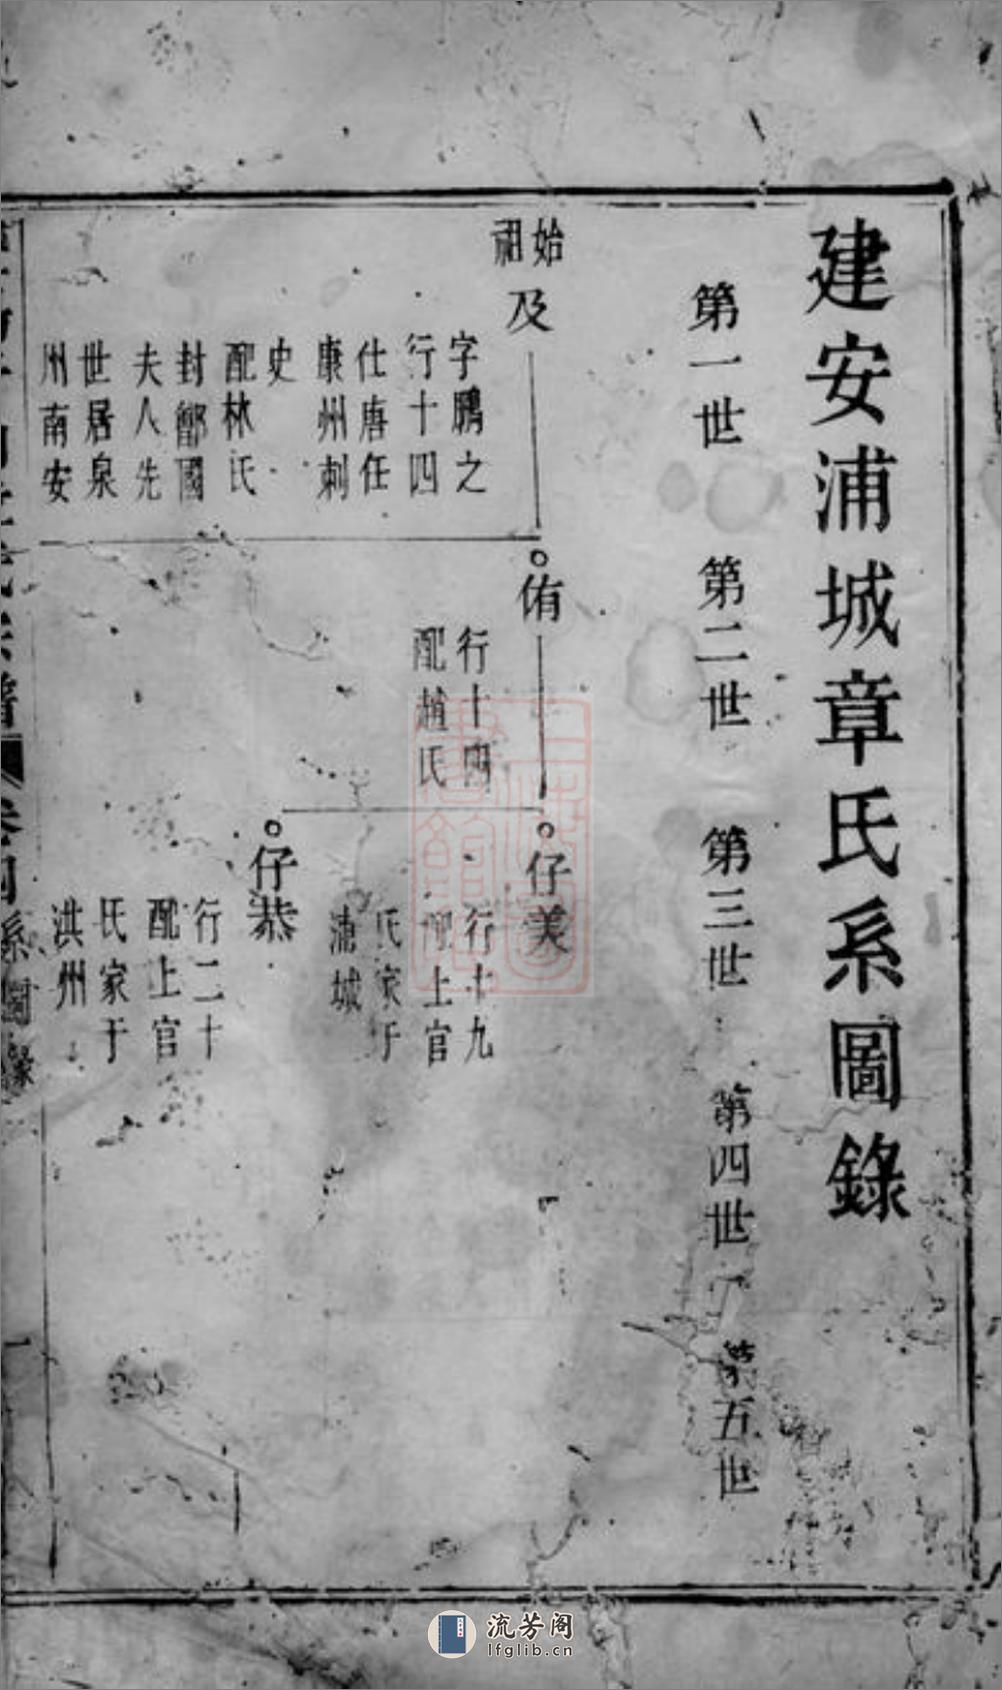 建安浦城章氏系圖錄
第一世 第二世 第三世 第四世 第五世
始
祖
及
字鵬之
行十四
仕唐任
康州刺
史
配林氏
封鄮國
夫人先
世居泉
州南安
侑
行十四
配趙氏
仔美
行十九
配上官
氏家于
浦城
仔恭
行二十
配上官
氏家于
洪州
系圖錄
流芳阁
lfglib.cn